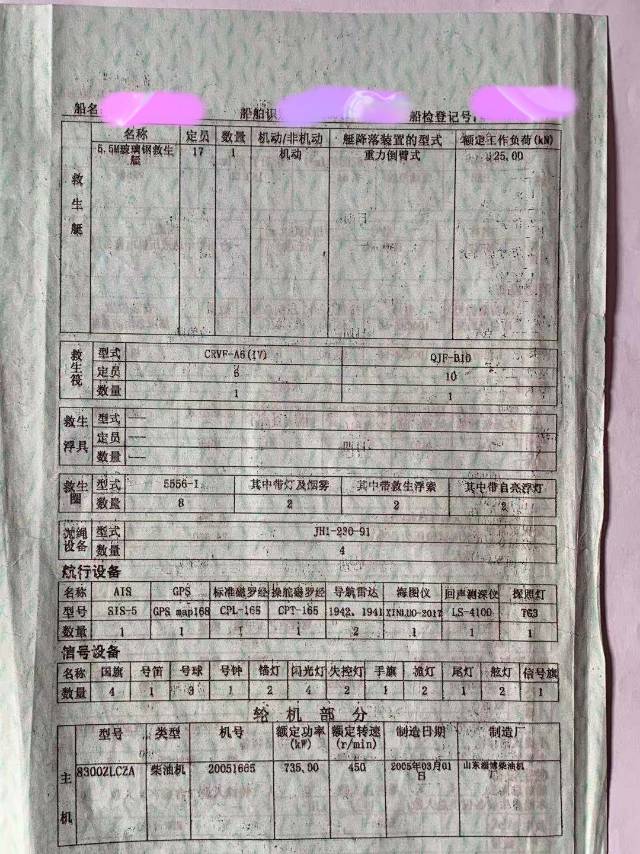 船名
船舶识
船检登记号
救生艇
名称 定员 数量 机动/非机动 艇降落装置的型式 额定工作负荷(kN)
5.5M玻璃钢救生艇 17 1 机动 重力倒臂式 25.00
救生筏
型式 CRVF-A6(IV) QJF-B10
定员 6 10
数量 1 1
救生浮具
型式 —
定员 —
数量 —
救生圈
型式 5556-1 其中带灯及烟雾 其中带救生浮索 其中带自亮浮灯
数量 8 2 2
抛绳设备
型式 JH1-230-91
数量 4
航行设备
名称 AIS GPS 标准磁罗经 操舵磁罗经 导航雷达 海图仪 回声测深仪 探照灯
型号 SIS-5 GPS map168 CPL-165 CPT-165 1942, 1941 XINLUO-2017 LS-4100 TG3
数量 1 1 1 1 2 1 1 1
信号设备
名称 国旗 号笛 号球 号钟 锚灯 闪光灯 失控灯 手旗 桅灯 尾灯 舷灯 信号旗
数量 4 1 3 1 2 4 2 1 2 1 2 1
轮机部分
主机
型号 类型 机号 额定功率(kW) 额定转速(r/min) 制造日期 制造厂
8300ZLCZA 柴油机 20051665 735.00 450 2005年03月01日 山东淄博柴油机厂